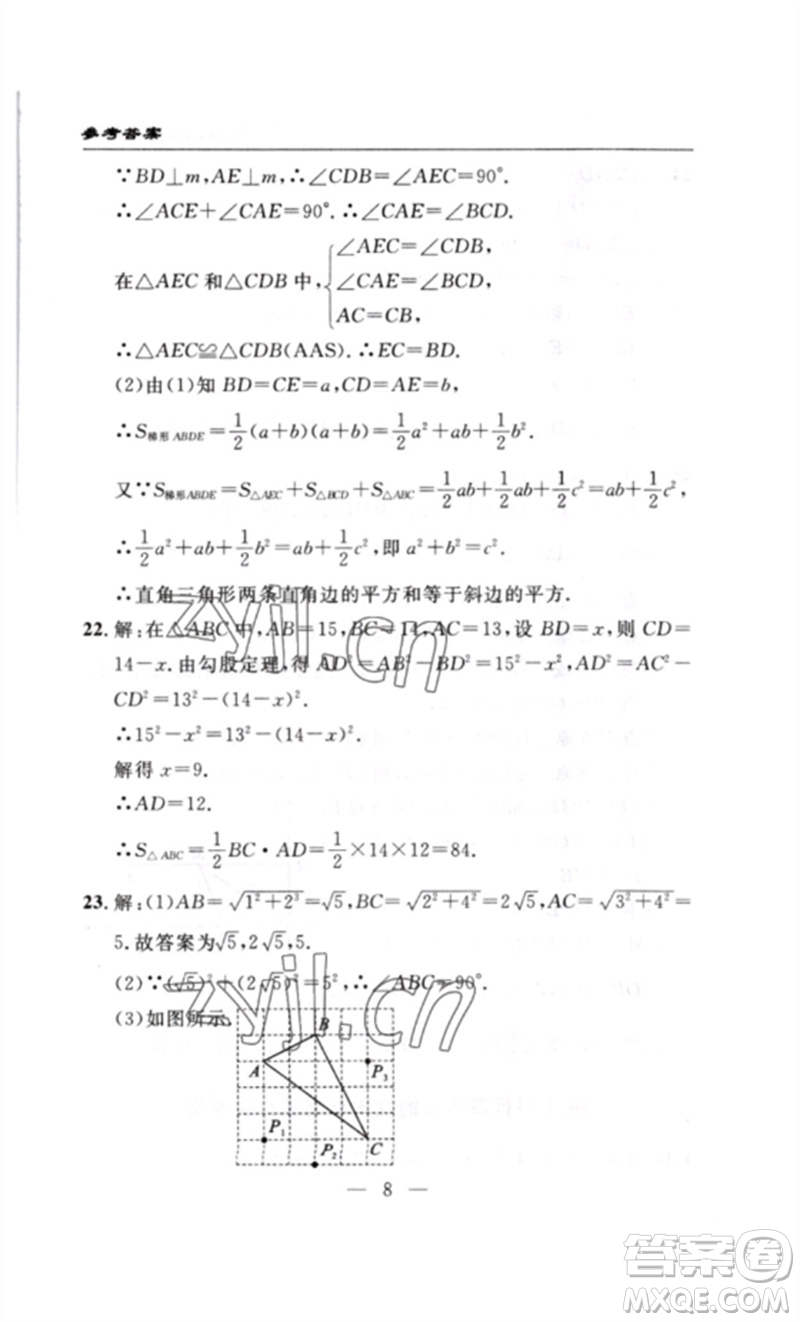 参考答案
∵BD⊥m,AE⊥m,∴∠CDB=∠AEC=90°.
∴∠ACE+∠CAE=90°.∴∠CAE=∠BCD.
在△AEC和△CDB中,{∠AEC=∠CDB,
∠CAE=∠BCD,
AC=CB,
∴△AEC≌△CDB(AAS).∴EC=BD.
(2)由(1)知BD=CE=a,CD=AE=b,
∴S梯形ABDE=1/2(a+b)(a+b)=1/2a²+ab+1/2b².
又∵S梯形ABDE=S△AEC+S△BCD+S△ABC=1/2ab+1/2ab+1/2c²=ab+1/2c²,
∴1/2a²+ab+1/2b²=ab+1/2c²,即a²+b²=c².
∴直角三角形两条直角边的平方和等于斜边的平方.
22.解:在△ABC中,AB=15,BC=14,AC=13,设BD=x,则CD=
14-x.由勾股定理,得AD²=AB²-BD²=15²-x²,AD²=AC²-
CD²=13²-(14-x)².
∴15²-x²=13²-(14-x)².
解得x=9.
∴AD=12.
∴S△ABC=1/2BC·AD=1/2×14×12=84.
23.解:(1)AB=√(1²+2³)=√5,BC=√(2²+4²)=2√5,AC=√(3²+4²)=
5.故答案为√5,2√5,5.
(2)∵(√5)²+(2√5)²=5²,∴∠ABC=90°.
(3)如图所示.
B
A
P₃
P₁
P₂
C
— 8 —
zyjl.cn
zyjl.cn
答案卷
MXQE.COM